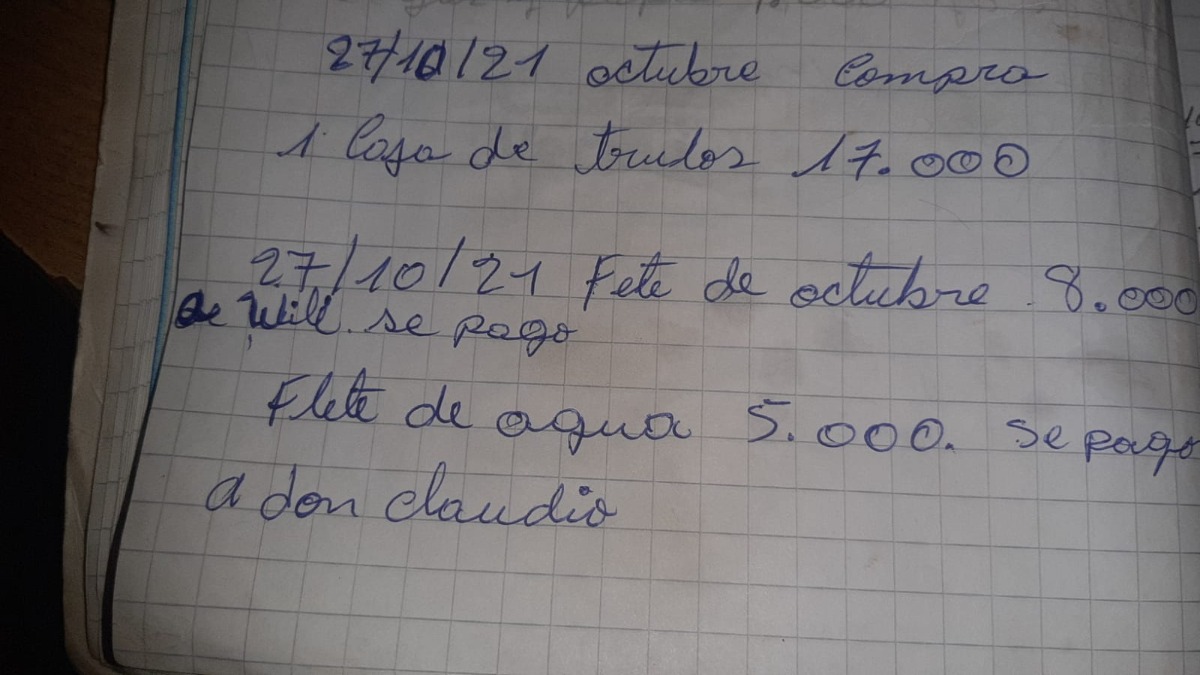 27/10/21 octubre Compra
1 Caja de trulos 17.000
27/10/21 Fete de octubre 8.000
de Will. se pago
Flete de agua 5.000. se pago
a don claudio